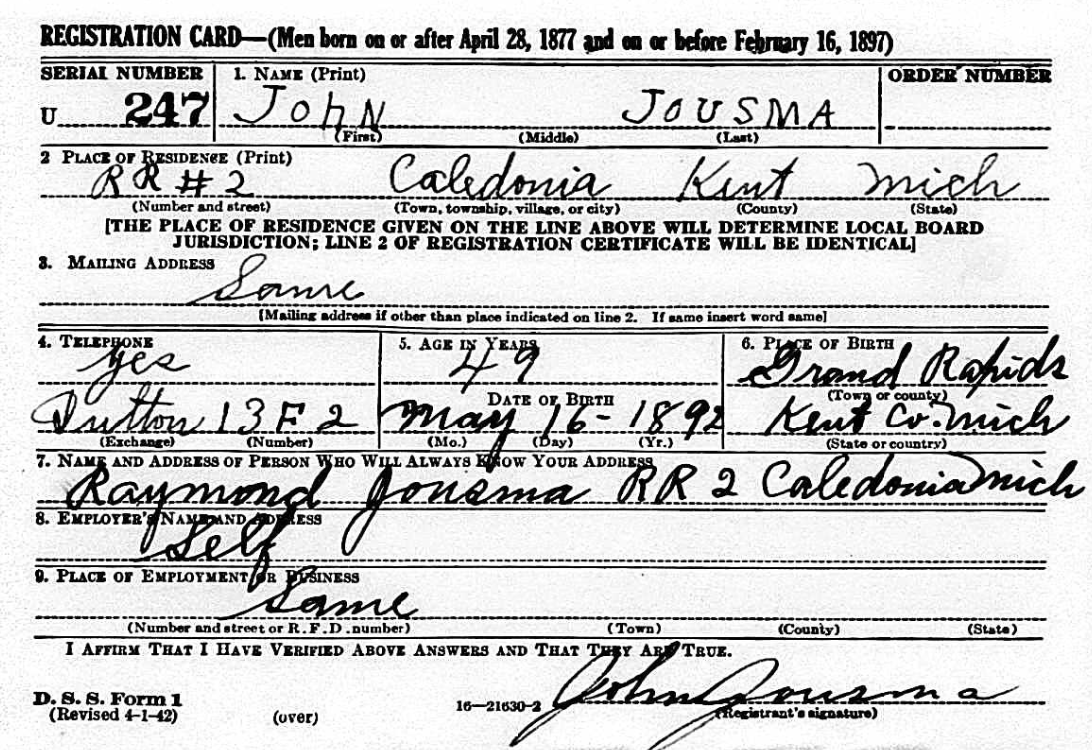 REGISTRATION CARD—(Men born on or after April 28, 1877 and on or before February 16, 1897)
SERIAL NUMBER 1. NAME (Print) ORDER NUMBER
U 247 JOHN JOUSMA
(First) (Middle) (Last)
2 PLACE OF RESIDENCE (Print)
RR # 2 Caledonia Kent Mich
(Number and street) (Town, township, village, or city) (County) (State)
[THE PLACE OF RESIDENCE GIVEN ON THE LINE ABOVE WILL DETERMINE LOCAL BOARD
JURISDICTION; LINE 2 OF REGISTRATION CERTIFICATE WILL BE IDENTICAL]
3. MAILING ADDRESS
Same
[Mailing address if other than place indicated on line 2. If same insert word same]
4. TELEPHONE 5. AGE IN YEARS 6. PLACE OF BIRTH
yes 49 Grand Rapids
DATE OF BIRTH (Town or county)
Dutton 13F2 May 16-1892 Kent Co. Mich
(Exchange) (Number) (Mo.) (Day) (Yr.) (State or country)
7. NAME AND ADDRESS OF PERSON WHO WILL ALWAYS KNOW YOUR ADDRESS
Raymond Jousma RR 2 Caledonia Mich
8. EMPLOYER'S NAME AND ADDRESS
Self
9. PLACE OF EMPLOYMENT OR BUSINESS
Same
(Number and street or R.F.D. number) (Town) (County) (State)
I AFFIRM THAT I HAVE VERIFIED ABOVE ANSWERS AND THAT THEY ARE TRUE.
John Jousma
D. S. S. Form 1 16—21630-2
(Revised 4-1-42) (over) (Registrant's signature)